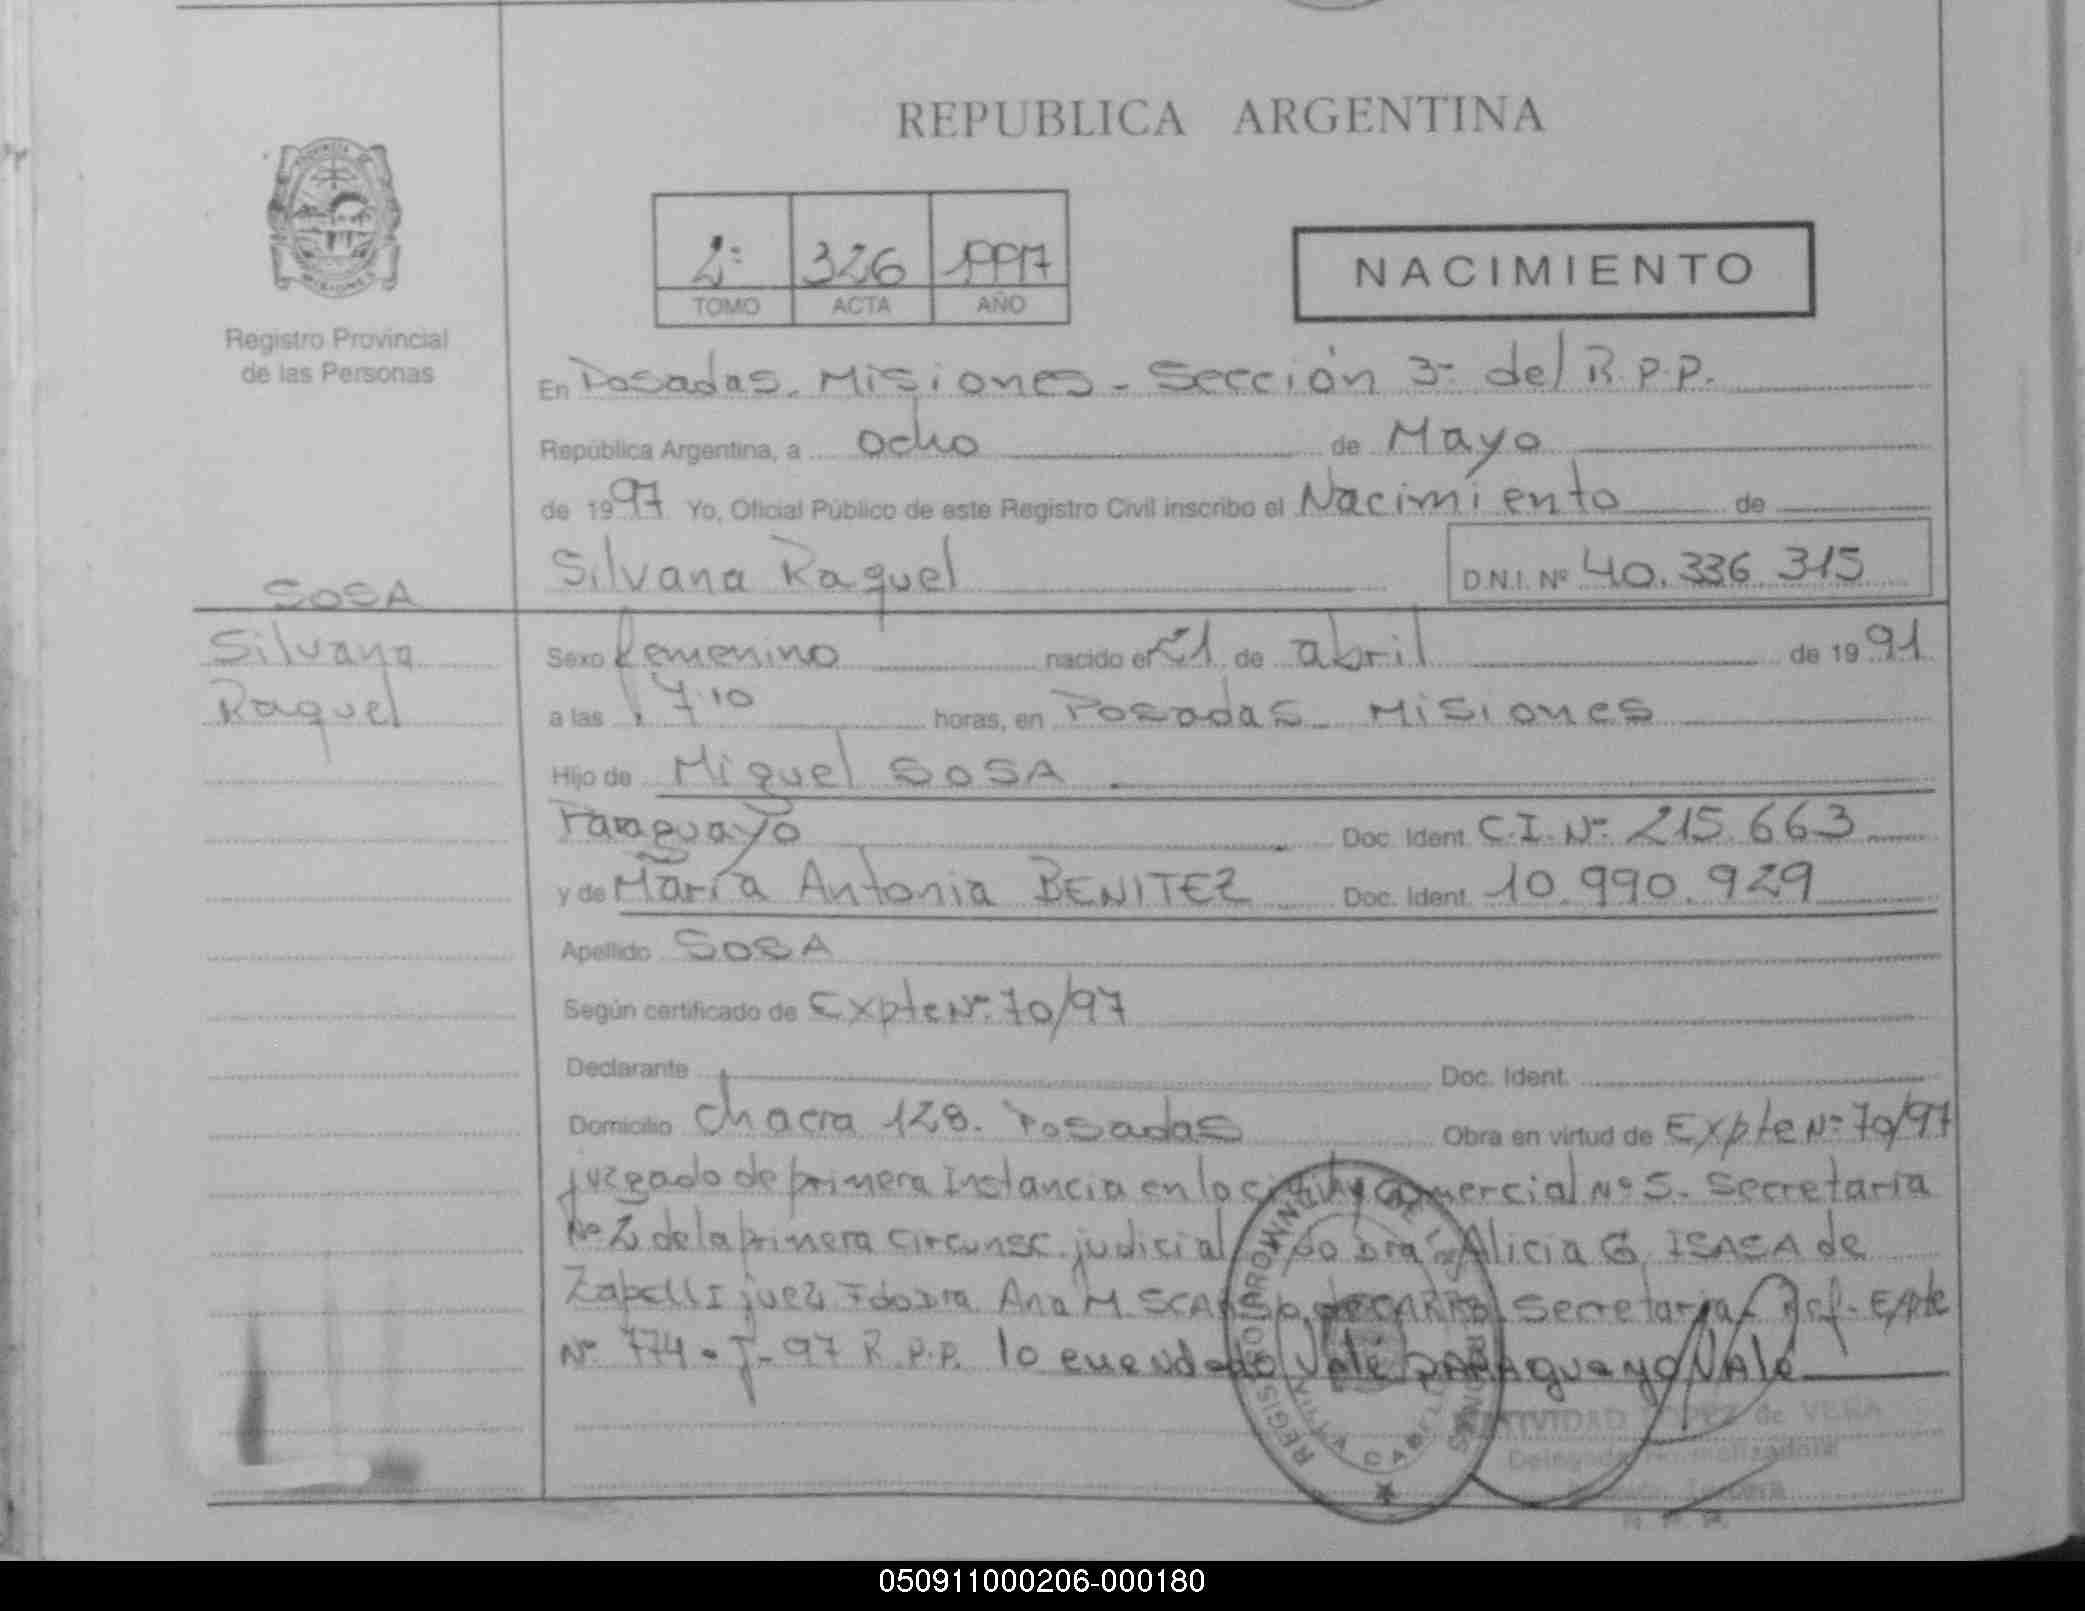 REPUBLICA ARGENTINA
2º 326 1997
TOMO ACTA AÑO
NACIMIENTO
Registro Provincial
de las Personas
En Posadas. Misiones - Sección 3º del R.P.P.
República Argentina, a ocho de Mayo
de 1997 Yo, Oficial Público de este Registro Civil inscribo el Nacimiento de
Silvana Raquel D.N.I. Nº 40.336.315
SOSA
Silvana
Raquel
Sexo femenino nacido el 21 de abril de 1991
a las 7'10 horas, en Posadas - Misiones
Hijo de Miguel SOSA
Paraguayo Doc. Ident. C.I. Nº 215.663
y de María Antonia BENITEZ Doc. Ident. 10.990.929
Apellido SOSA
Según certificado de Expte Nº 70/97
Declarante Doc. Ident.
Domicilio chacra 128. Posadas Obra en virtud de Expte Nº 70/97
juzgado de primera Instancia en lo civil y comercial Nº 5. Secretaria
Nº 2 de la primera circunsc. judicial Fdo Dra Alicia G. de
Zapelli juez Fdo Dra Ana M. Secretaria. Ref. Expte
Nº 774-J-97 R.P.P. lo enmendado Vale PARAguayo VAle
NATIVIDAD LOPEZ de VERA
REGISTRO PROVINCIAL DE LAS PERSONAS
VILLA CABELLO
050911000206-000180